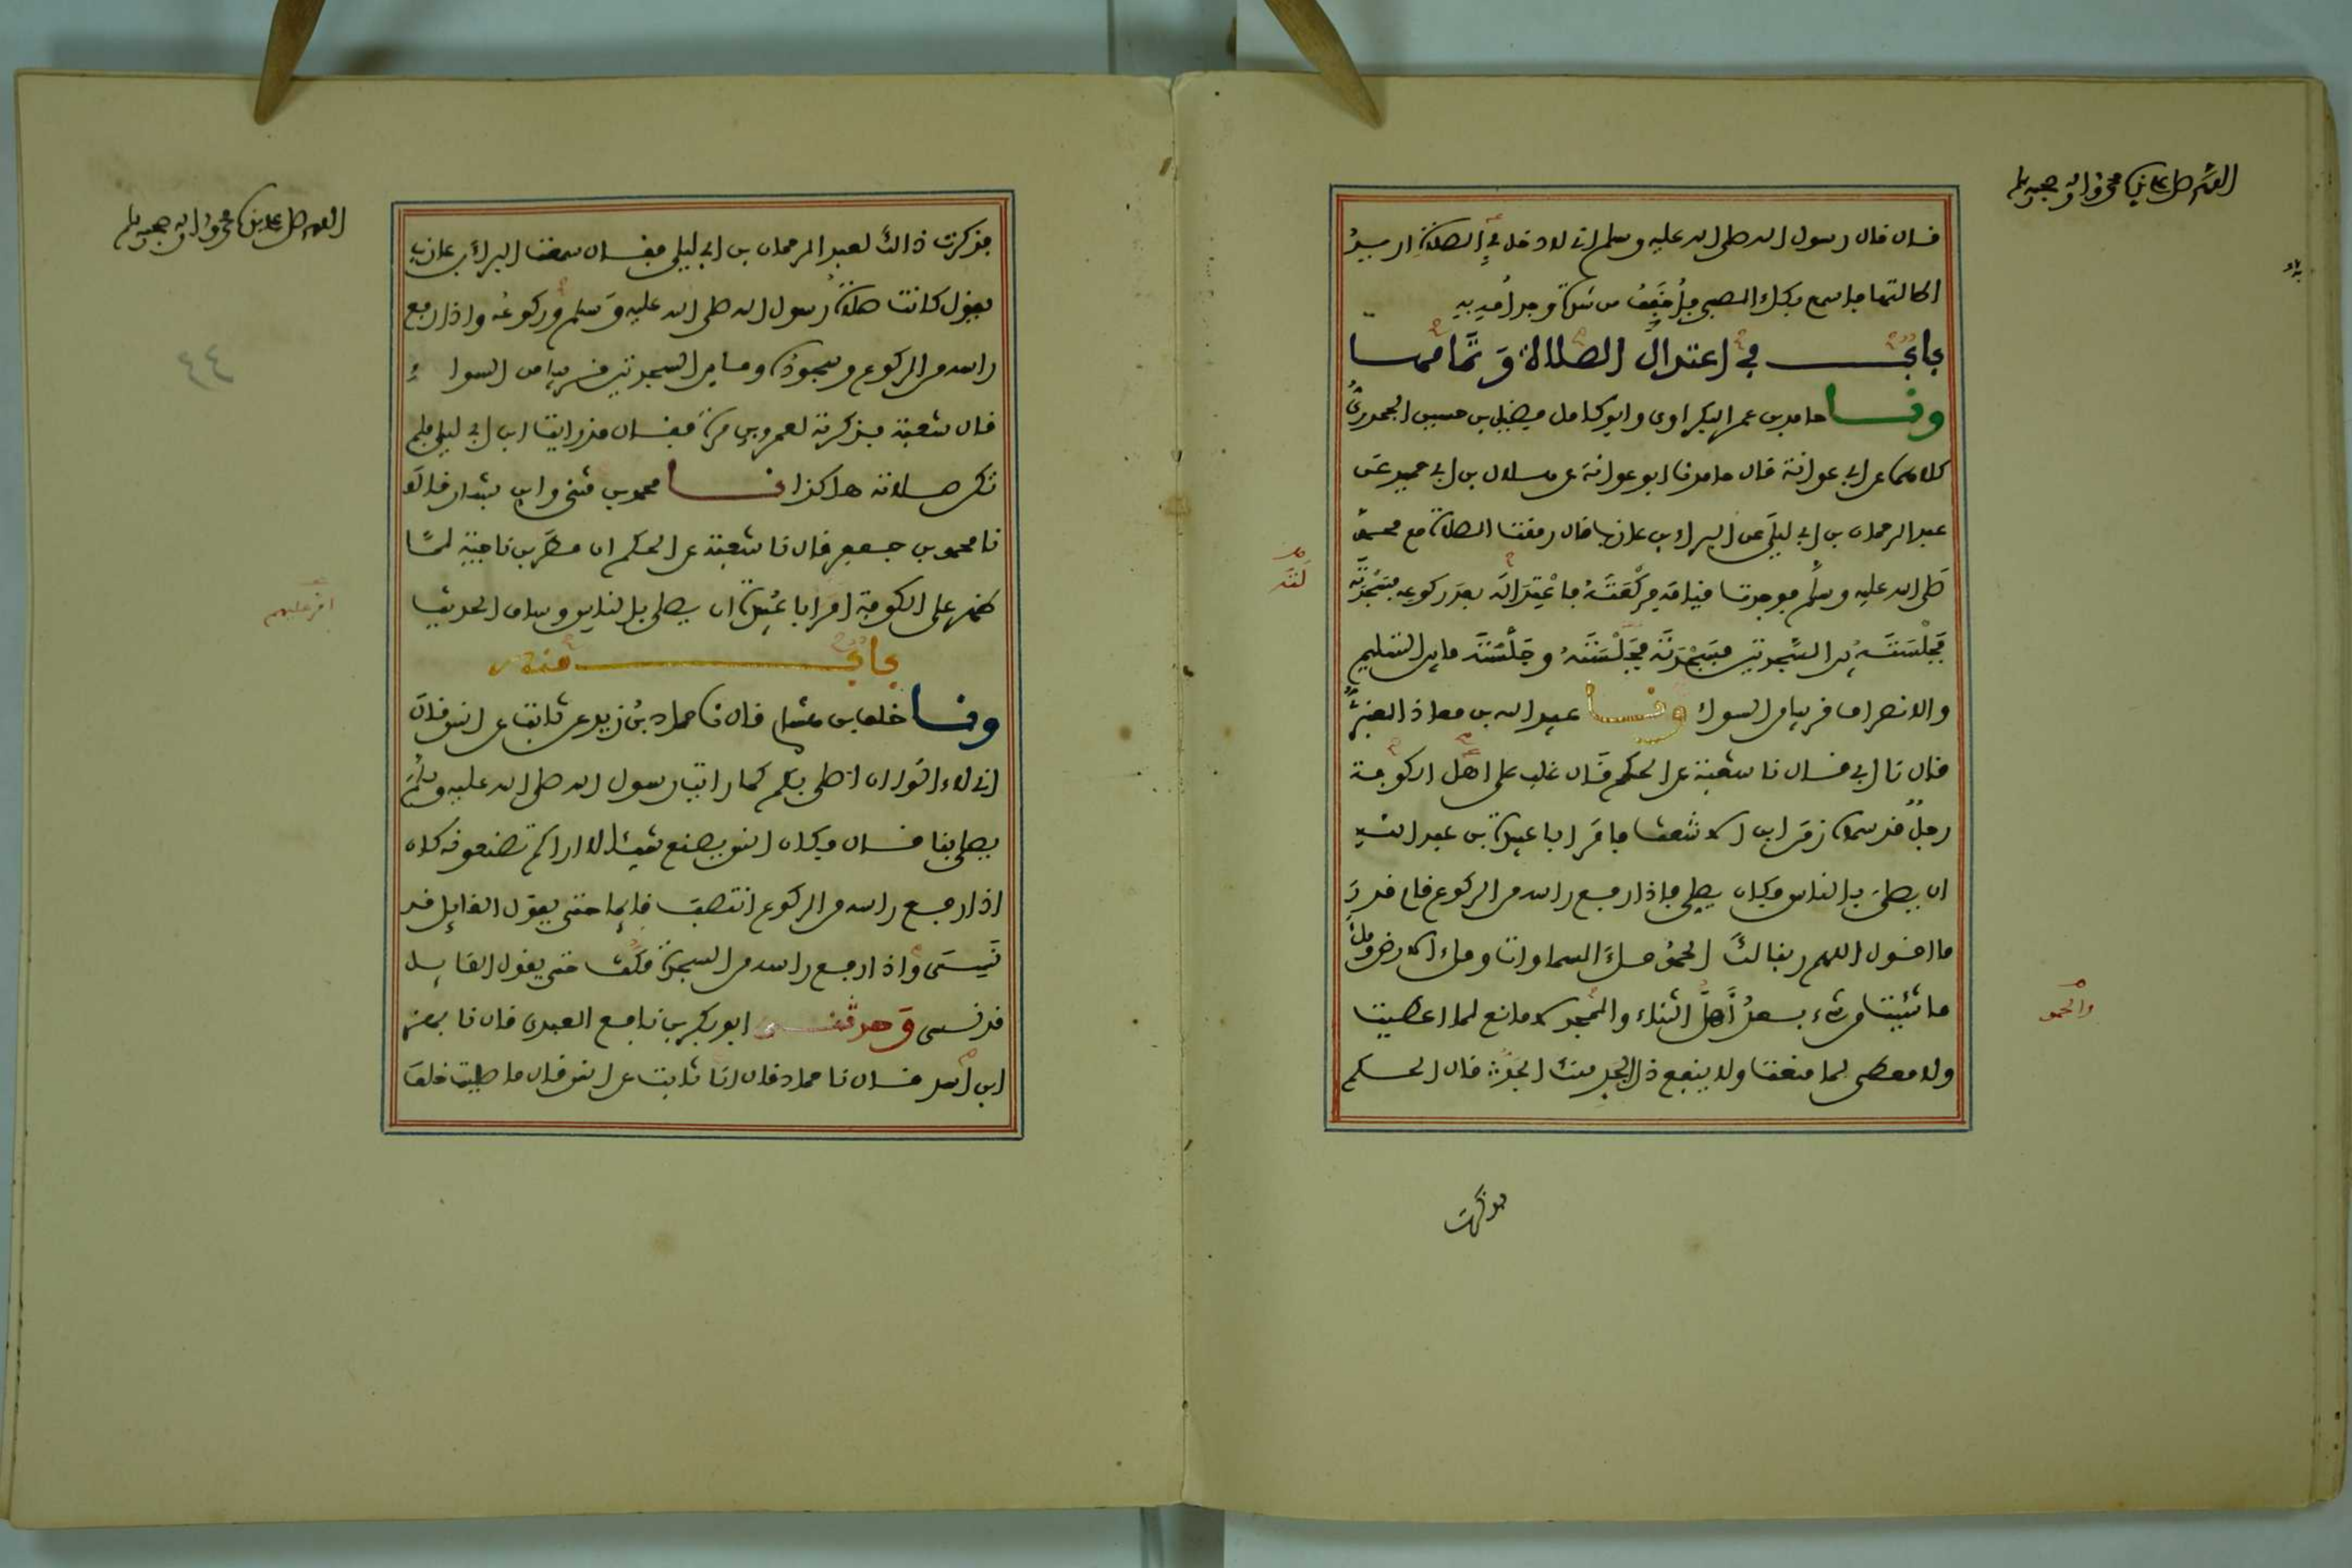 اللهم صل على نبينا محمد واله وصحبه وسلم
قال قال رسول الله صلى الله عليه وسلم اني لادخل في الصلاة اريد
اطالتها فاسمع بكاء الصبي فأخفف من شدة وجد أمه به
باب في اعتدال الصلاة وتمامها
ونا حامد بن عمر البكراوي وابو كامل فضيل بن حسين الجحدري
كلاهما عن ابي عوانة قال حامد نا ابو عوانة عن هلال بن ابي حميد عن
عبد الرحمان بن ابي ليلى عن البراء بن عازب قال رمقت الصلاة مع محمد
صلى الله عليه وسلم فوجدت قيامه فركعته فاعتداله بعد ركوعه فسجدته
فجلسته بين السجدتين فسجدته فجلسته وجلسته ما بين التسليم
والانصراف قريبا من السواء ونا عبيد الله بن معاذ العنبري
قال نا ابي قال نا شعبة عن الحكم قال غلب على اهل الكوفة
رجل قد سماه زمن ابن الاشعث فامر ابا عبيدة بن عبد الله
ان يصلي بالناس فكان يصلي فاذا رفع راسه من الركوع قام قدر
ما اقول اللهم ربنا لك الحمد ملء السماوات وملء الارض وملء
ما شئت من شيء بعد أهل الثناء والمجد لا مانع لما اعطيت
ولا معطي لما منعت ولا ينفع ذا الجد منك الجد قال الحكم
لته
والحمد
فذكرت
اللهم صل على نبينا محمد واله وصحبه وسلم
٤٤
فذكرت ذالك لعبد الرحمان بن ابي ليلى فقال سمعت البراء بن عازب
يقول كانت صلاة رسول الله صلى الله عليه وسلم وركوعه واذا رفع
راسه من الركوع وسجوده وما بين السجدتين قريبا من السواء
قال شعبة فذكرته لعمرو بن مرة فقال قد رايت ابن ابي ليلى فلم
تكن صلاته هاكذا نا محمد بن مثنى وابن بشار قالا
نا محمد بن جعفر قال نا شعبة عن الحكم ان مطر بن ناجية لما
ظهر على الكوفة امر ابا عبيدة ان يصلي بالناس وساق الحديث
باب منه
ونا خلف بن هشام قال نا حماد بن زيد عن ثابت عن انس قال
اني لاءالو ان اصلي بكم كما رايت رسول الله صلى الله عليه وسلم
يصلي بنا قال فكان انس يصنع شيئا لا اراكم تصنعونه كان
اذا رفع راسه من الركوع انتصب قايما حتى يقول القايل قد
نسي واذا رفع راسه من السجدة مكث حتى يقول القايل
قد نسي وحدثني ابو بكر بن نافع العبدي قال نا بهز
ابن اسد قال نا حماد قال انا ثابت عن انس قال ما صليت خلف